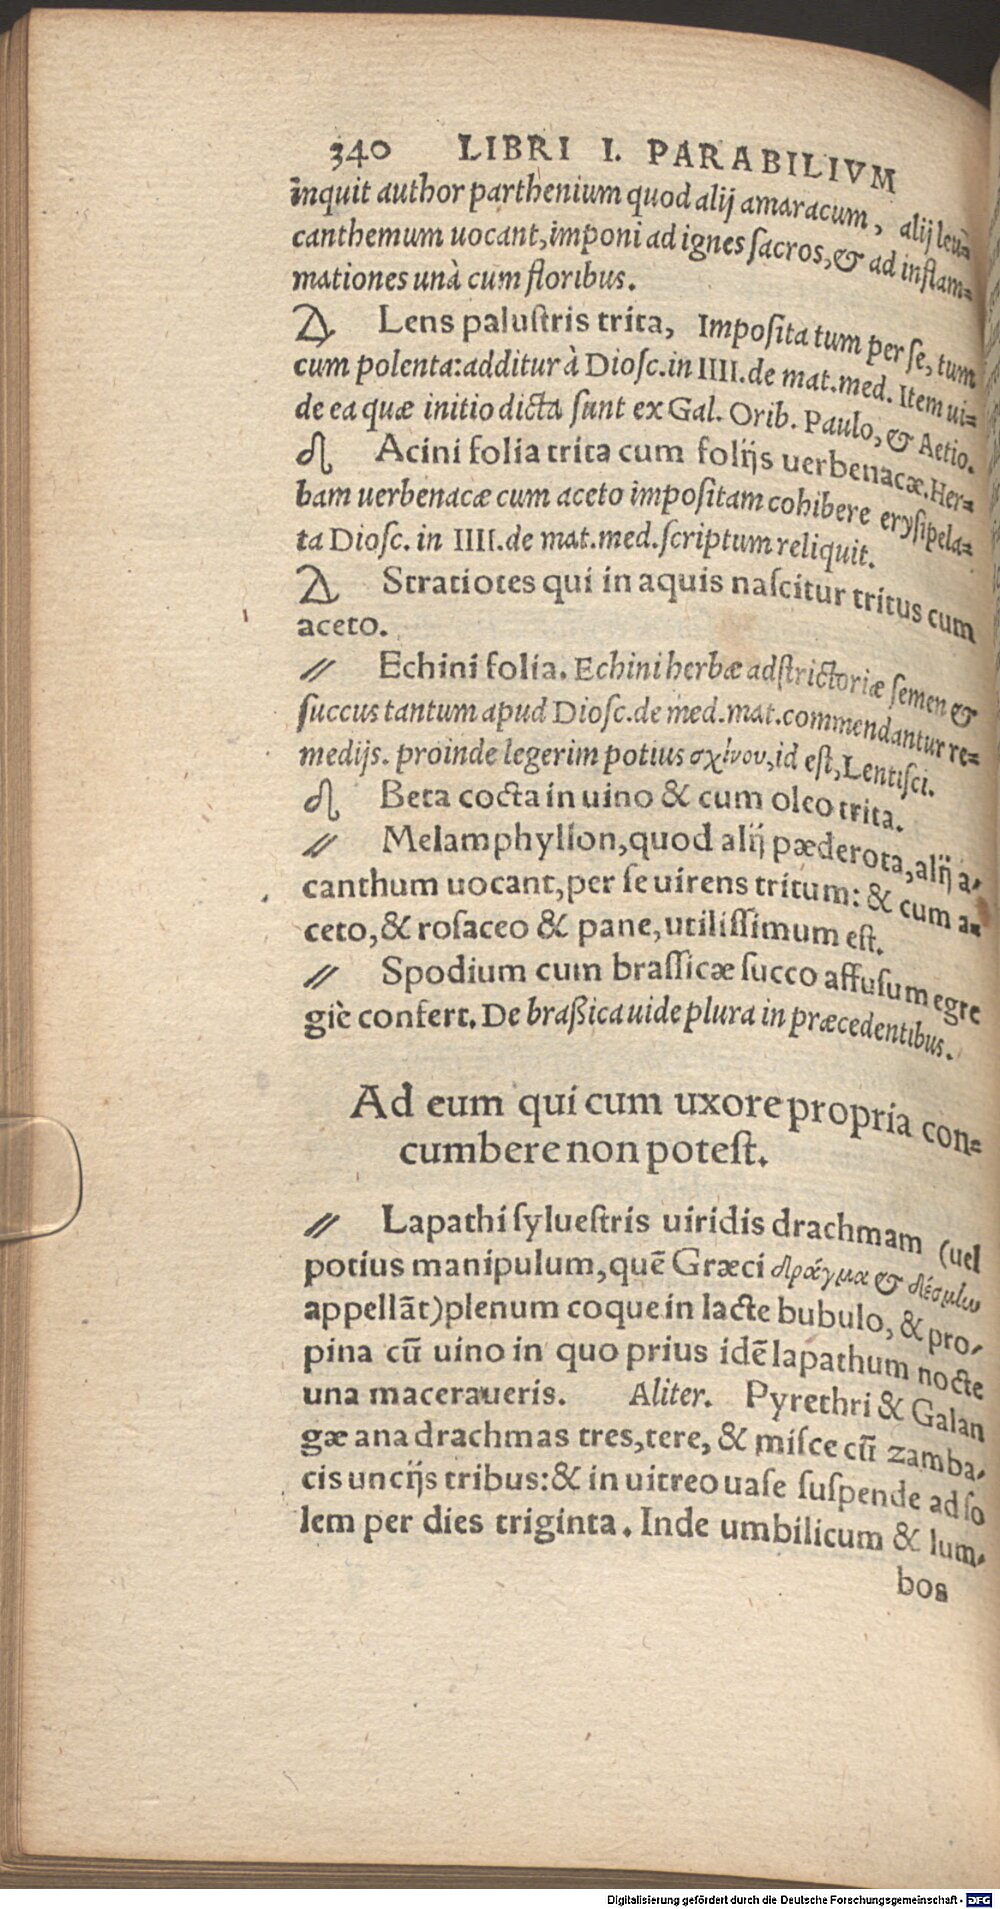 340 LIBRI I. PARABILIVM
inquit author parthenium quod alij amaracum, alij leu=
canthemum uocant, imponi ad ignes ſacros, & ad inflam=
mationes unà cum floribus.
Lens paluſtris trita, Impoſita tum per ſe, tum
cum polenta: additur à Dioſc. in IIII. de mat. med. Item ui=
de ea quæ initio dicta ſunt ex Gal. Orib. Paulo, & Aetio.
Acini folia trita cum folijs uerbenacæ. Her=
bam uerbenacæ cum aceto impoſitam cohibere eryſipela=
ta Dioſc. in IIII. de mat. med. ſcriptum reliquit.
Stratiotes qui in aquis naſcitur tritus cum
aceto.
// Echini folia. Echini herbæ adſtrictoriæ ſemen &
ſuccus tantum apud Dioſc. de med. mat. commendantur re=
medijs. proinde legerim potius σχίνου, id eſt, Lentiſci.
Beta cocta in uino & cum oleo trita.
// Melamphyllon, quod alij pæderota, alij a-
canthum uocant, per ſe uirens tritum: & cum a=
ceto, & roſaceo & pane, utiliſſimum eſt.
// Spodium cum braſſicæ ſucco affuſum egre
giè confert. De braßica uide plura in præcedentibus.
Ad eum qui cum uxore propria con=
cumbere non poteſt.
// Lapathi ſylueſtris uiridis drachmam (uel
potius manipulum, quē Græci δράγμα &
appellāt) plenum coque in lacte bubulo, & pro-
pina cū uino in quo prius idē lapathum nocte
una maceraueris. Aliter. Pyrethri & Galan
gæ ana drachmas tres, tere, & miſce cū zamba-
cis uncijs tribus: & in uitreo uaſe ſuſpende ad ſo
lem per dies triginta. Inde umbilicum & lum-
bos
Digitalisierung gefördert durch die Deutsche Forschungsgemeinschaft - DFG